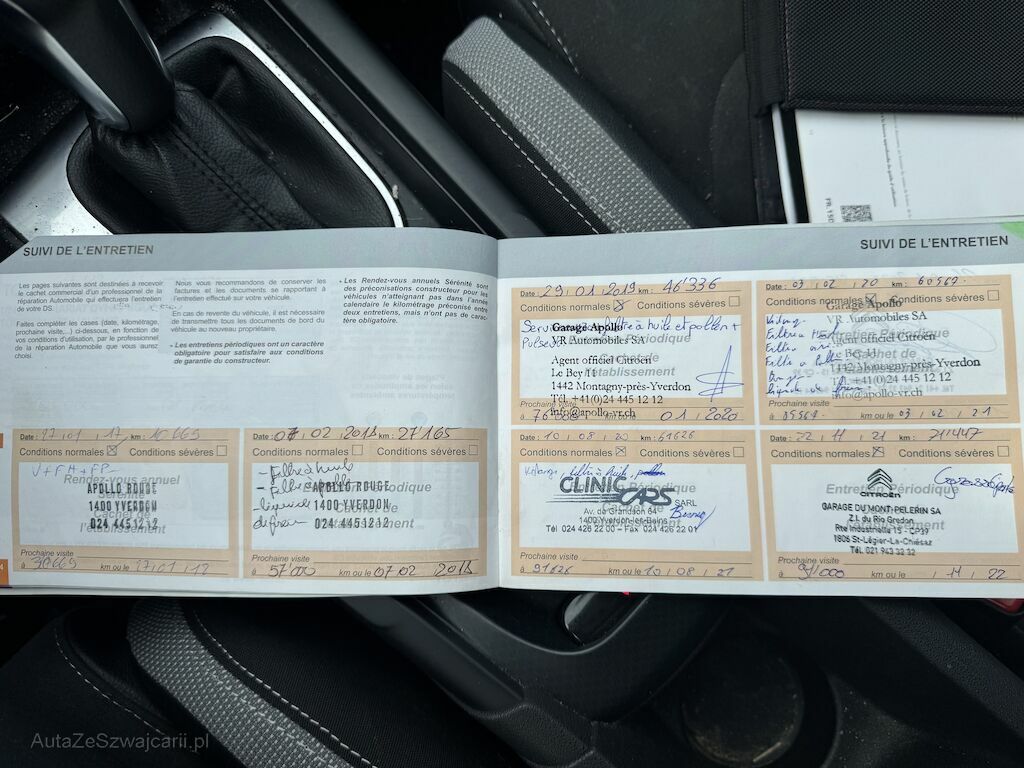 SUIVI DE L'ENTRETIEN
Les pages suivantes sont destinées à recevoir
le cachet commercial d'un professionnel de la
réparation Automobile qui effectuera l'entretien
de votre DS.
Faites compléter les cases (date, kilométrage,
prochaine visite,...) ci-dessous, en fonction de
vos conditions d'utilisation, par le professionnel
de la réparation Automobile que vous aurez
choisi.
Nous vous recommandons de conserver les
factures et les documents se rapportant à
l'entretien effectué sur votre véhicule.
En cas de revente du véhicule, il est nécessaire
de transmettre tous les documents de bord du
véhicule au nouveau propriétaire.
- Les entretiens périodiques ont un caractère
obligatoire pour satisfaire aux conditions
de garantie du constructeur.
- Les Rendez-vous annuels Sérénité sont
des préconisations constructeur pour les
véhicules n'atteignant pas dans l'année
calendaire le kilométrage préconisé entre
deux entretiens, mais n'ont pas de carac-
tère obligatoire.
Date : 17/01/17 km : 10'665
Conditions normales Conditions sévères
V+FH+FP
Rendez-vous annuel
Sérénité
Cachet de
l'établissement
APOLLO ROUGE
1400 YVERDON
024 4451212
Prochaine visite
à 30665 km ou le 17/01/18
Date : 07 02 2018 km : 27'165
Conditions normales Conditions sévères
- Filtre à huile
liquide
de frein
Entretien Périodique
Cachet de
l'établissement
APOLLO ROUGE
1400 YVERDON
024 4451212
Prochaine visite
à 57'000 km ou le 07/02 2018
SUIVI DE L'ENTRETIEN
Date : 29/01/2019 km : 46'336
Conditions normales Conditions sévères
filtre à huile et pollen +
Entretien Périodique
Cachet de
l'établissement
Garage Apollo
VR Automobiles SA
Agent officiel Citroën
Le Bey 11
1442 Montagny-près-Yverdon
Tél. +41(0)24 445 12 12
info@apollo-vr.ch
Prochaine visite
01/2020
Date : 03/02/20 km : 60569
Conditions normales Conditions sévères
Vidange
Entretien Périodique
Garage Apollo
VR Automobiles SA
Agent officiel Citroën
Le Bey 11
1442 Montagny-près-Yverdon
Tél. +41(0)24 445 12 12
info@apollo-vr.ch
liquide de frein
Prochaine visite
km ou le 03/02/21
Date : 10/08/20 km : 61626
Conditions normales Conditions sévères
Vidange, filtre à huile, pollen
Entretien Périodique
CLINIC CARS SARL
Av. de Grandson 64
1400 Yverdon-les-Bains
Tél 024 426 22 00 – Fax 024 426 22 01
Prochaine visite
à 91626 km ou le 10/08/21
Date : 22/11/21 km : 71'447
Conditions normales Conditions sévères
Entretien Périodique
CITROËN
GARAGE DU MONT-PELERIN SA
Z.I. du Rio Gredon
Rte Industrielle 15 - CP39
1806 St-Légier-La-Chiésaz
Tél. 021 943 32 32
Prochaine visite
à 91'000 km ou le /11/22
AutaZeSzwajcarii.pl